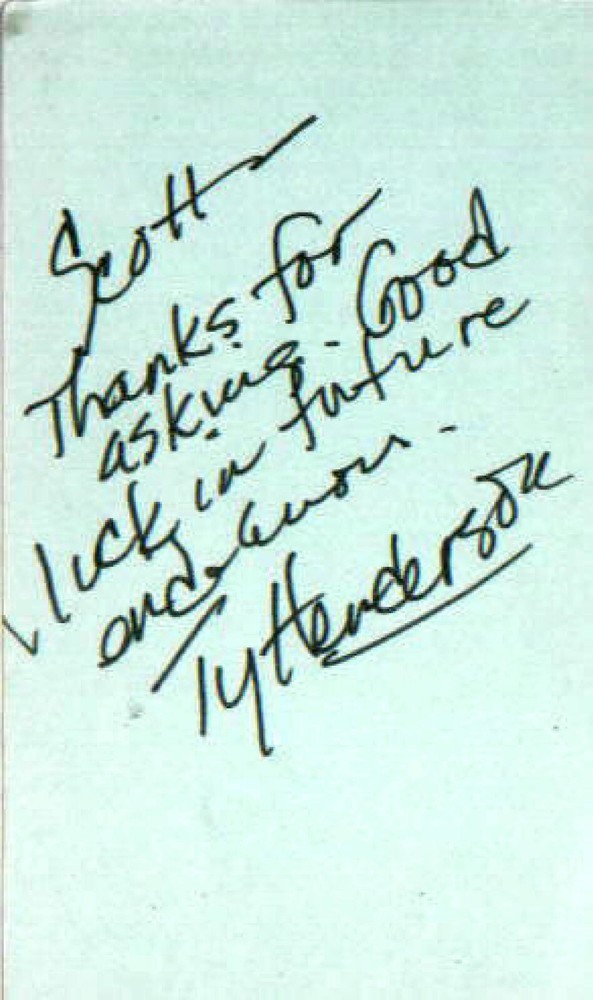 Scott -
Thanks for
asking. Good
luck in future
endeavors.
Ty Henderson